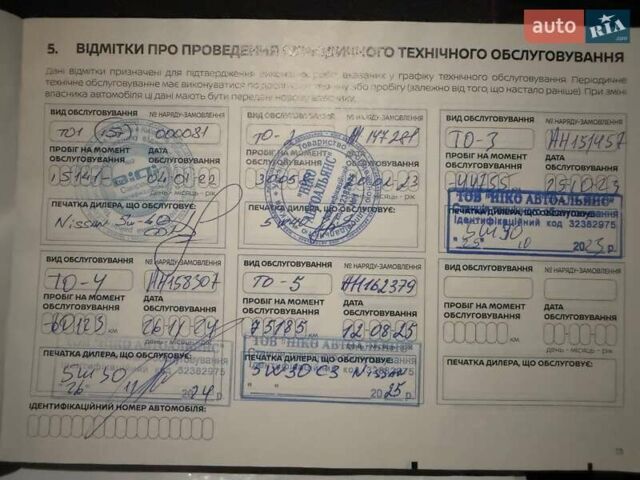 auto RIA .com
5. ВІДМІТКИ ПРО ПРОВЕДЕННЯ ТЕХНІЧНОГО ОБСЛУГОВУВАННЯ
Дані відмітки призначені для підтвердження виконання робіт, вказаних у графіку технічного обслуговування. Періодичне
технічне обслуговування має виконуватися по терміну або пробігу (залежно від того, що настало раніше). При зміні
власника автомобіля ці дані мають бути передані новому власнику.
ВИД ОБСЛУГОВУВАННЯ № НАРЯДУ-ЗАМОВЛЕННЯ
ТО1 (15Т) 0000081
ПРОБІГ НА МОМЕНТ ОБСЛУГОВУВАННЯ ДАТА ОБСЛУГОВУВАННЯ
15141 04.01.22
день - місяць - рік
ПЕЧАТКА ДИЛЕРА, ЩО ОБСЛУГОВУЄ:
Nissan 5w-40
ВИД ОБСЛУГОВУВАННЯ № НАРЯДУ-ЗАМОВЛЕННЯ
АН147281
ПРОБІГ НА МОМЕНТ ОБСЛУГОВУВАННЯ ДАТА ОБСЛУГОВУВАННЯ
ПЕЧАТКА ДИЛЕРА, ЩО ОБСЛУГОВУЄ:
"НІКО АВТОАЛЬЯНС"
ВИД ОБСЛУГОВУВАННЯ № НАРЯДУ-ЗАМОВЛЕННЯ
ТО-3 АН151457
ПРОБІГ НА МОМЕНТ ОБСЛУГОВУВАННЯ ДАТА ОБСЛУГОВУВАННЯ
44755 25.10.23
ТОВ "НІКО АВТОАЛЬЯНС"
ПЕЧАТКА ДИЛЕРА, ЩО ОБСЛУГОВУЄ:
Ідентифікаційний код 32382975
5W30
"25" 10 2023 р.
ВИД ОБСЛУГОВУВАННЯ № НАРЯДУ-ЗАМОВЛЕННЯ
ТО-4 АН158307
ПРОБІГ НА МОМЕНТ ОБСЛУГОВУВАННЯ ДАТА ОБСЛУГОВУВАННЯ
60123 км 26.11.24
ПЕЧАТКА ДИЛЕРА, ЩО ОБСЛУГОВУЄ:
32382975
5W30
26 11 2024 р.
ВИД ОБСЛУГОВУВАННЯ № НАРЯДУ-ЗАМОВЛЕННЯ
ТО-5 АН162379
ПРОБІГ НА МОМЕНТ ОБСЛУГОВУВАННЯ ДАТА ОБСЛУГОВУВАННЯ
75185 км 12-08-25
ТОВ "НІКО АВТОАЛЬЯНС"
ПЕЧАТКА ДИЛЕРА, ЩО ОБСЛУГОВУЄ:
32382975
5W30 C3 Nissan
2025 р.
ВИД ОБСЛУГОВУВАННЯ № НАРЯДУ-ЗАМОВЛЕННЯ
ПРОБІГ НА МОМЕНТ ОБСЛУГОВУВАННЯ ДАТА ОБСЛУГОВУВАННЯ
км день - місяць - рік
ПЕЧАТКА ДИЛЕРА, ЩО ОБСЛУГОВУЄ:
ІДЕНТИФІКАЦІЙНИЙ НОМЕР АВТОМОБІЛЯ: